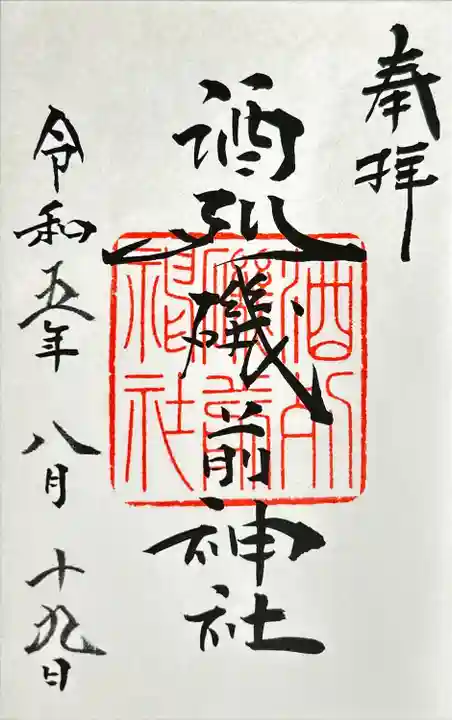 奉拝
酒列磯前神社
酒列磯前神社
令和五年八月十九日